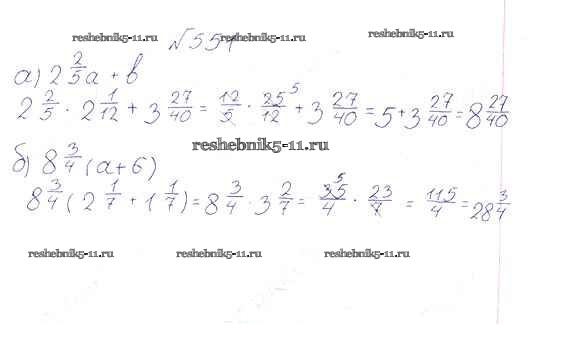 reshebnik5-11.ru № 551 reshebnik5-11.ru reshebnik5-11.ru
а) 2 2/5 a + b
2 2/5 · 2 1/12 + 3 27/40 = 12/5 · 25/12 5 + 3 27/40 = 5 + 3 27/40 = 8 27/40
reshebnik5-11.ru
б) 8 3/4 (a + б)
8 3/4 ( 2 1/7 + 1 1/7 ) = 8 3/4 · 3 2/7 = 35/4 5 · 23/7 = 115/4 = 28 3/4
reshebnik5-11.ru reshebnik5-11.ru reshebnik5-11.ru